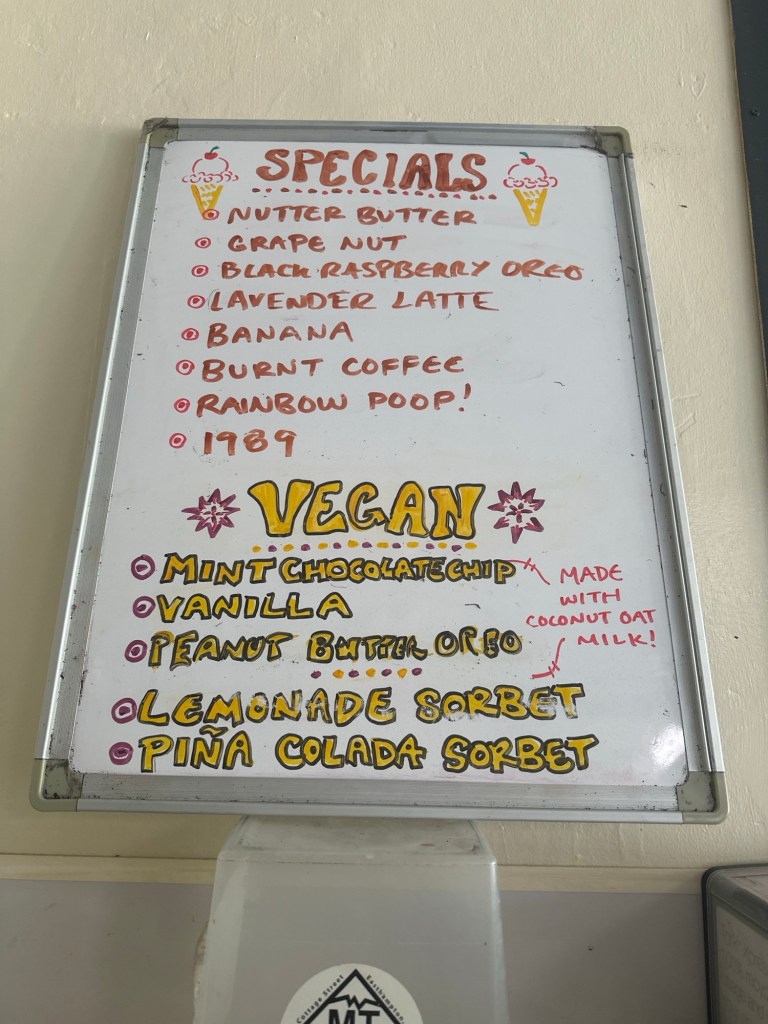 SPECIALS
NUTTER BUTTER
GRAPE NUT
BLACK RASPBERRY OREO
LAVENDER LATTE
BANANA
BURNT COFFEE
RAINBOW POOP!
1989
VEGAN
MINT CHOCOLATE CHIP
VANILLA
PEANUT BUTTER OREO
MADE
WITH
COCONUT OAT
MILK!
LEMONADE SORBET
PIÑA COLADA SORBET
Cottage Street
Easthampton
MT